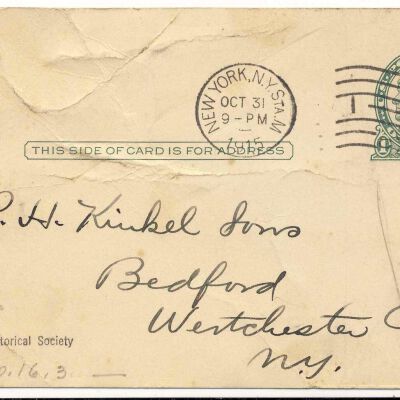 NEW YORK, N.Y. STA. M
OCT 31
9-PM
1915
1
THIS SIDE OF CARD IS FOR ADDRESS
. H. Kinkel Sons
Bedford
Westchester C
N.Y.
torical Society
0.16.3 —